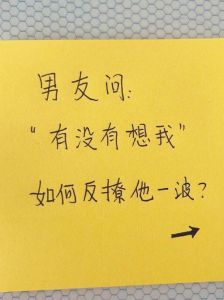 男友问:
“有没有想我”
如何反撩他一波?
→